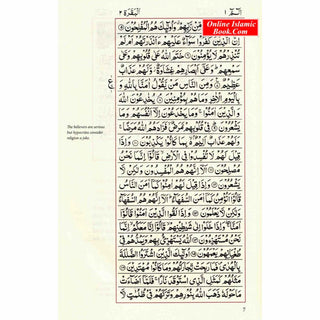 الٓمّٓ ١
البقرة ٢
Online Islamic
Book.Com
مِّنْ رَّبِّهِمْ وَاُولٰٓئِكَ هُمُ الْمُفْلِحُوْنَ
اِنَّ الَّذِيْنَ كَفَرُوْا سَوَآءٌ عَلَيْهِمْ ءَاَنْذَرْتَهُمْ اَمْ لَمْ
تُنْذِرْهُمْ لَا يُؤْمِنُوْنَ خَتَمَ اللّٰهُ عَلٰى قُلُوْبِهِمْ وَعَلٰى
سَمْعِهِمْ وَعَلٰٓى اَبْصَارِهِمْ غِشَاوَةٌ وَّلَهُمْ عَذَابٌ
عَظِيْمٌ وَمِنَ النَّاسِ مَنْ يَّقُوْلُ اٰمَنَّا بِاللّٰهِ وَ
بِالْيَوْمِ الْاٰخِرِ وَمَا هُمْ بِمُؤْمِنِيْنَ يُخٰدِعُوْنَ اللّٰهَ
وَالَّذِيْنَ اٰمَنُوْا وَمَا يَخْدَعُوْنَ اِلَّآ اَنْفُسَهُمْ وَمَا
يَشْعُرُوْنَ فِيْ قُلُوْبِهِمْ مَّرَضٌ فَزَادَهُمُ اللّٰهُ مَرَضًا
وَلَهُمْ عَذَابٌ اَلِيْمٌ بِمَا كَانُوْا يَكْذِبُوْنَ وَاِذَا
قِيْلَ لَهُمْ لَا تُفْسِدُوْا فِي الْاَرْضِ قَالُوْٓا اِنَّمَا نَحْنُ
مُصْلِحُوْنَ اَلَآ اِنَّهُمْ هُمُ الْمُفْسِدُوْنَ وَلٰكِنْ لَّا
يَشْعُرُوْنَ وَاِذَا قِيْلَ لَهُمْ اٰمِنُوْا كَمَآ اٰمَنَ
النَّاسُ قَالُوْٓا اَنُؤْمِنُ كَمَآ اٰمَنَ السُّفَهَآءُ اَلَآ اِنَّهُمْ هُمُ السُّفَهَآءُ
وَلٰكِنْ لَّا يَعْلَمُوْنَ وَاِذَا لَقُوا الَّذِيْنَ اٰمَنُوْا قَالُوْٓا
اٰمَنَّا وَاِذَا خَلَوْا اِلٰى شَيٰطِيْنِهِمْ قَالُوْٓا اِنَّا مَعَكُمْ اِنَّمَا
نَحْنُ مُسْتَهْزِءُوْنَ اَللّٰهُ يَسْتَهْزِئُ بِهِمْ وَيَمُدُّهُمْ فِيْ
طُغْيَانِهِمْ يَعْمَهُوْنَ اُولٰٓئِكَ الَّذِيْنَ اشْتَرَوُا الضَّلٰلَةَ
بِالْهُدٰى فَمَا رَبِحَتْ تِّجَارَتُهُمْ وَمَا كَانُوْا مُهْتَدِيْنَ
مَثَلُهُمْ كَمَثَلِ الَّذِى اسْتَوْقَدَ نَارًا فَلَمَّآ اَضَآءَتْ
مَا حَوْلَهٗ ذَهَبَ اللّٰهُ بِنُوْرِهِمْ وَتَرَكَهُمْ فِيْ ظُلُمٰتٍ لَّا
ع
The believers are serious
but hypocrites consider
religion a joke.
7